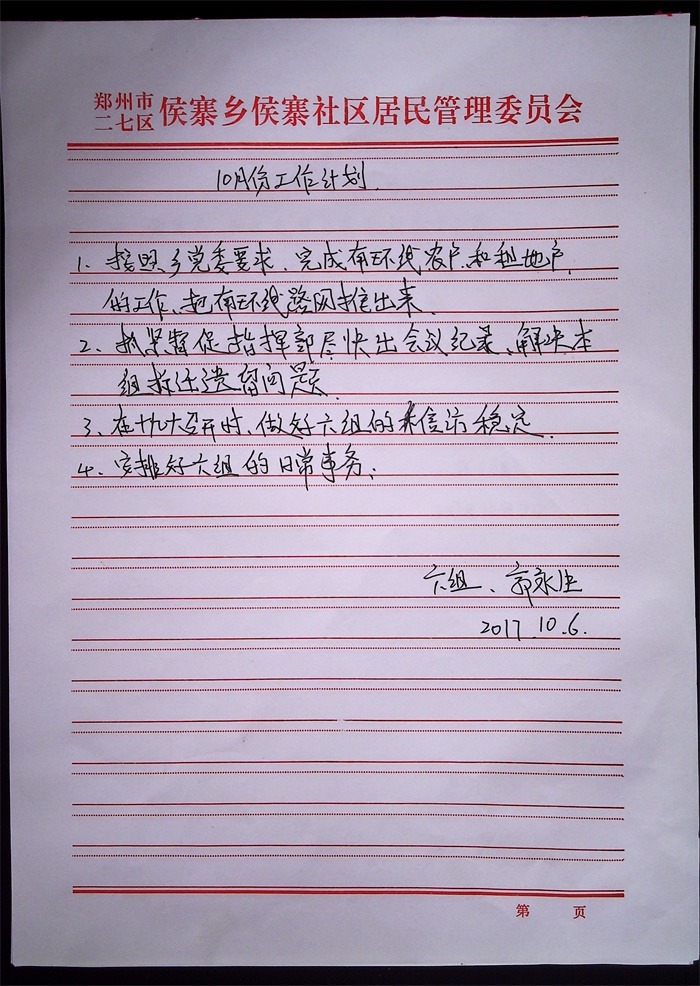 郑州市
二七区 侯寨乡侯寨社区居民管理委员会
10月份工作计划
1、按照乡党委要求、完成南环线农户和租地户
的工作、把南环线路网推出来
2、抓紧督促指挥部尽快出会议纪录、解决本
组拆迁遗留问题
3、在十九大召开时、做好六组的信访稳定
4、安排好六组的日常事务;
六组、郭永
2017.10.6.
第 页